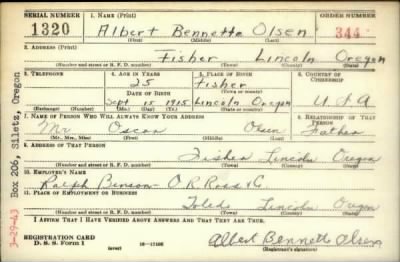 SERIAL NUMBER 1. NAME (Print) ORDER NUMBER
1320 Albert Bennette Olsen 344
(First) (Middle) (Last)
2. ADDRESS (Print)
Fisher Lincoln Oregon
(Number and street or R. F. D. number) (Town) (County) (State)
3. TELEPHONE 4. AGE IN YEARS 5. PLACE OF BIRTH 6. COUNTRY OF CITIZENSHIP
25 Fisher
DATE OF BIRTH (Town or county)
Sept 15 1915 Lincoln Oregon U.S.A
(Exchange) (Number) (Mo.) (Day) (Yr.) (State or country)
7. NAME OF PERSON WHO WILL ALWAYS KNOW YOUR ADDRESS 8. RELATIONSHIP OF THAT PERSON
Mr Oscar Olsen Father
(Mr., Mrs., Miss) (First) (Middle) (Last)
9. ADDRESS OF THAT PERSON
Fisher Lincoln Oregon
(Number and street or R. F. D. number) (Town) (County) (State)
10. EMPLOYER'S NAME
Ralph Benson - O.R. Ross & Co.
11. PLACE OF EMPLOYMENT OR BUSINESS
Toledo Lincoln Oregon
(Number and street or R. F. D. number) (Town) (County) (State)
I AFFIRM THAT I HAVE VERIFIED ABOVE ANSWERS AND THAT THEY ARE TRUE.
REGISTRATION CARD
D. S. S. Form 1 (over) Albert Bennette Olsen
(Registrant's signature)
3-29-43 Box 206, Siletz, Oregon